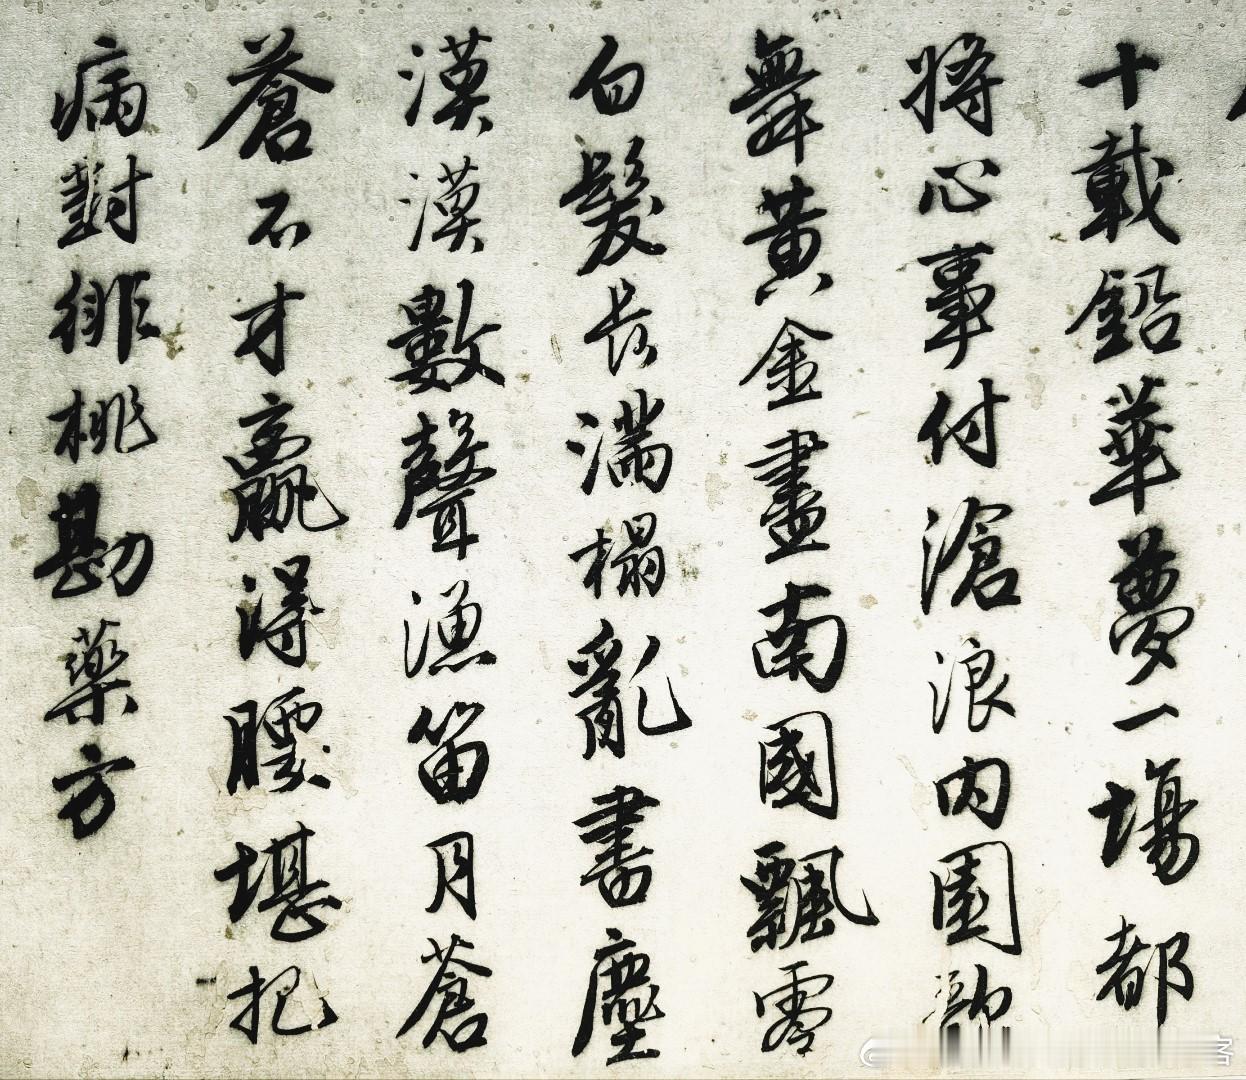 十載鉛華夢一場都
將心事付滄浪內園歌
舞黃金盡南國飄零
白髮長滿榻亂書塵
漠漠數聲漁笛月蒼
蒼不才贏得腰堪把
病對緋桃勘藥方